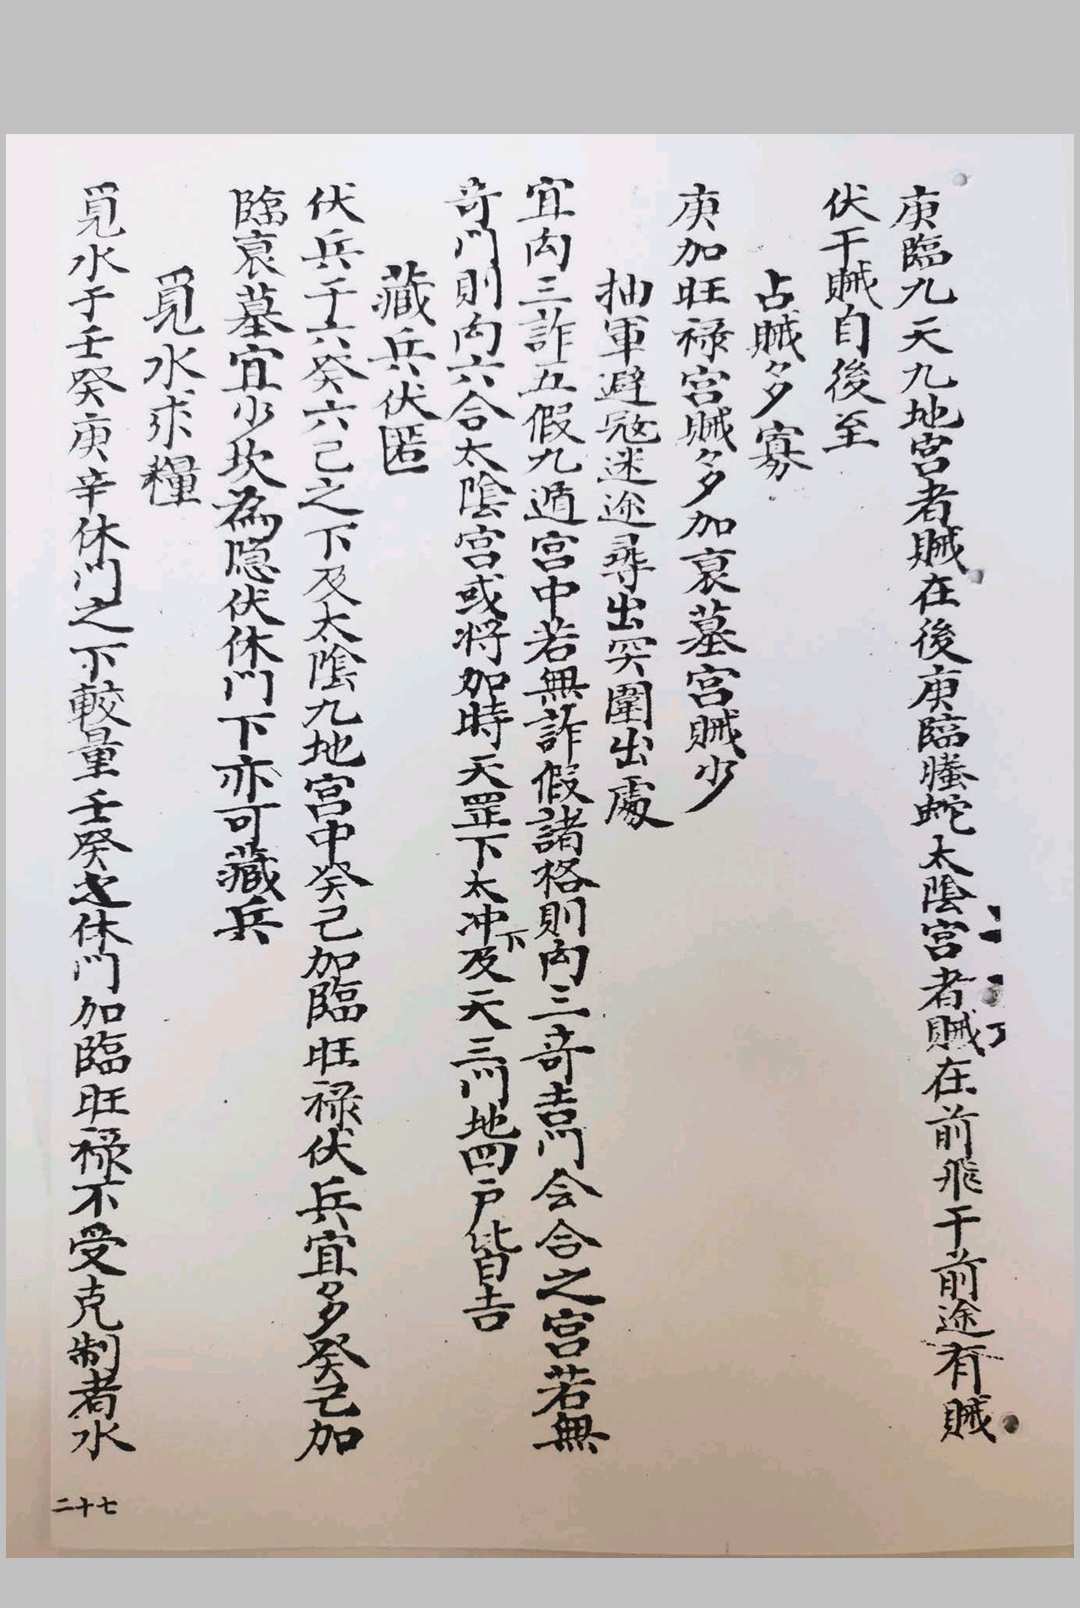 庚臨九天九地宮者賊在後庚臨螣蛇太陰宮者賊在前飛干前途有賊
伏干賊自後至
占賊多寡
庚加旺禄宮賊多加衰墓宮賊少
抽軍避寇迷途尋出突圍出處
宜向三詐五假九遁宮中若無詐假諸格則向三奇吉門会合之宮若無
奇門則向六合太陰宮或將加時天罡下太冲下及天三門地四戸皆吉
藏兵伏匿
伏兵于六癸六己之下及太陰九地宮中癸己加臨旺禄伏兵宜多癸己加
臨衰墓宜少坎為隠伏休門下亦可藏兵
覓水求糧
覓水于壬癸庚辛休門之下較量壬癸之休門加臨旺禄不受克制者水
二十七